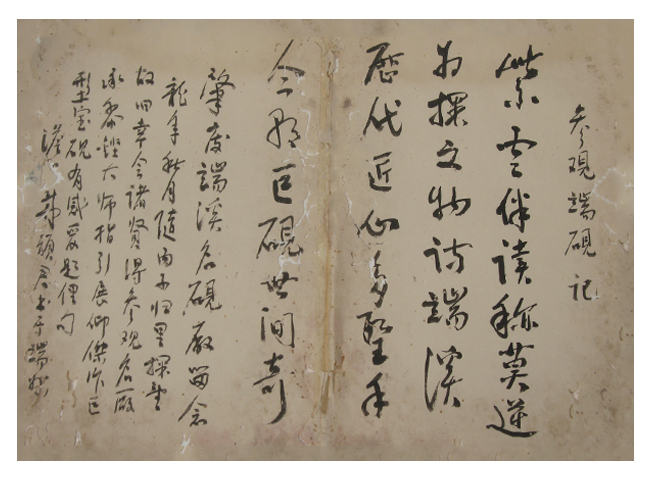 参观端砚记
紫云伴读称莫逆
为探文物访端溪
历代近心多圣手
今的巨砚世间奇
肇庆端溪名砚厂留念
龙年秋月随内子归里探
故旧幸会诸贤得参观名厂
承黎铿大师指引展仰杰作巨
型宝砚有感爰题俚句
书于端